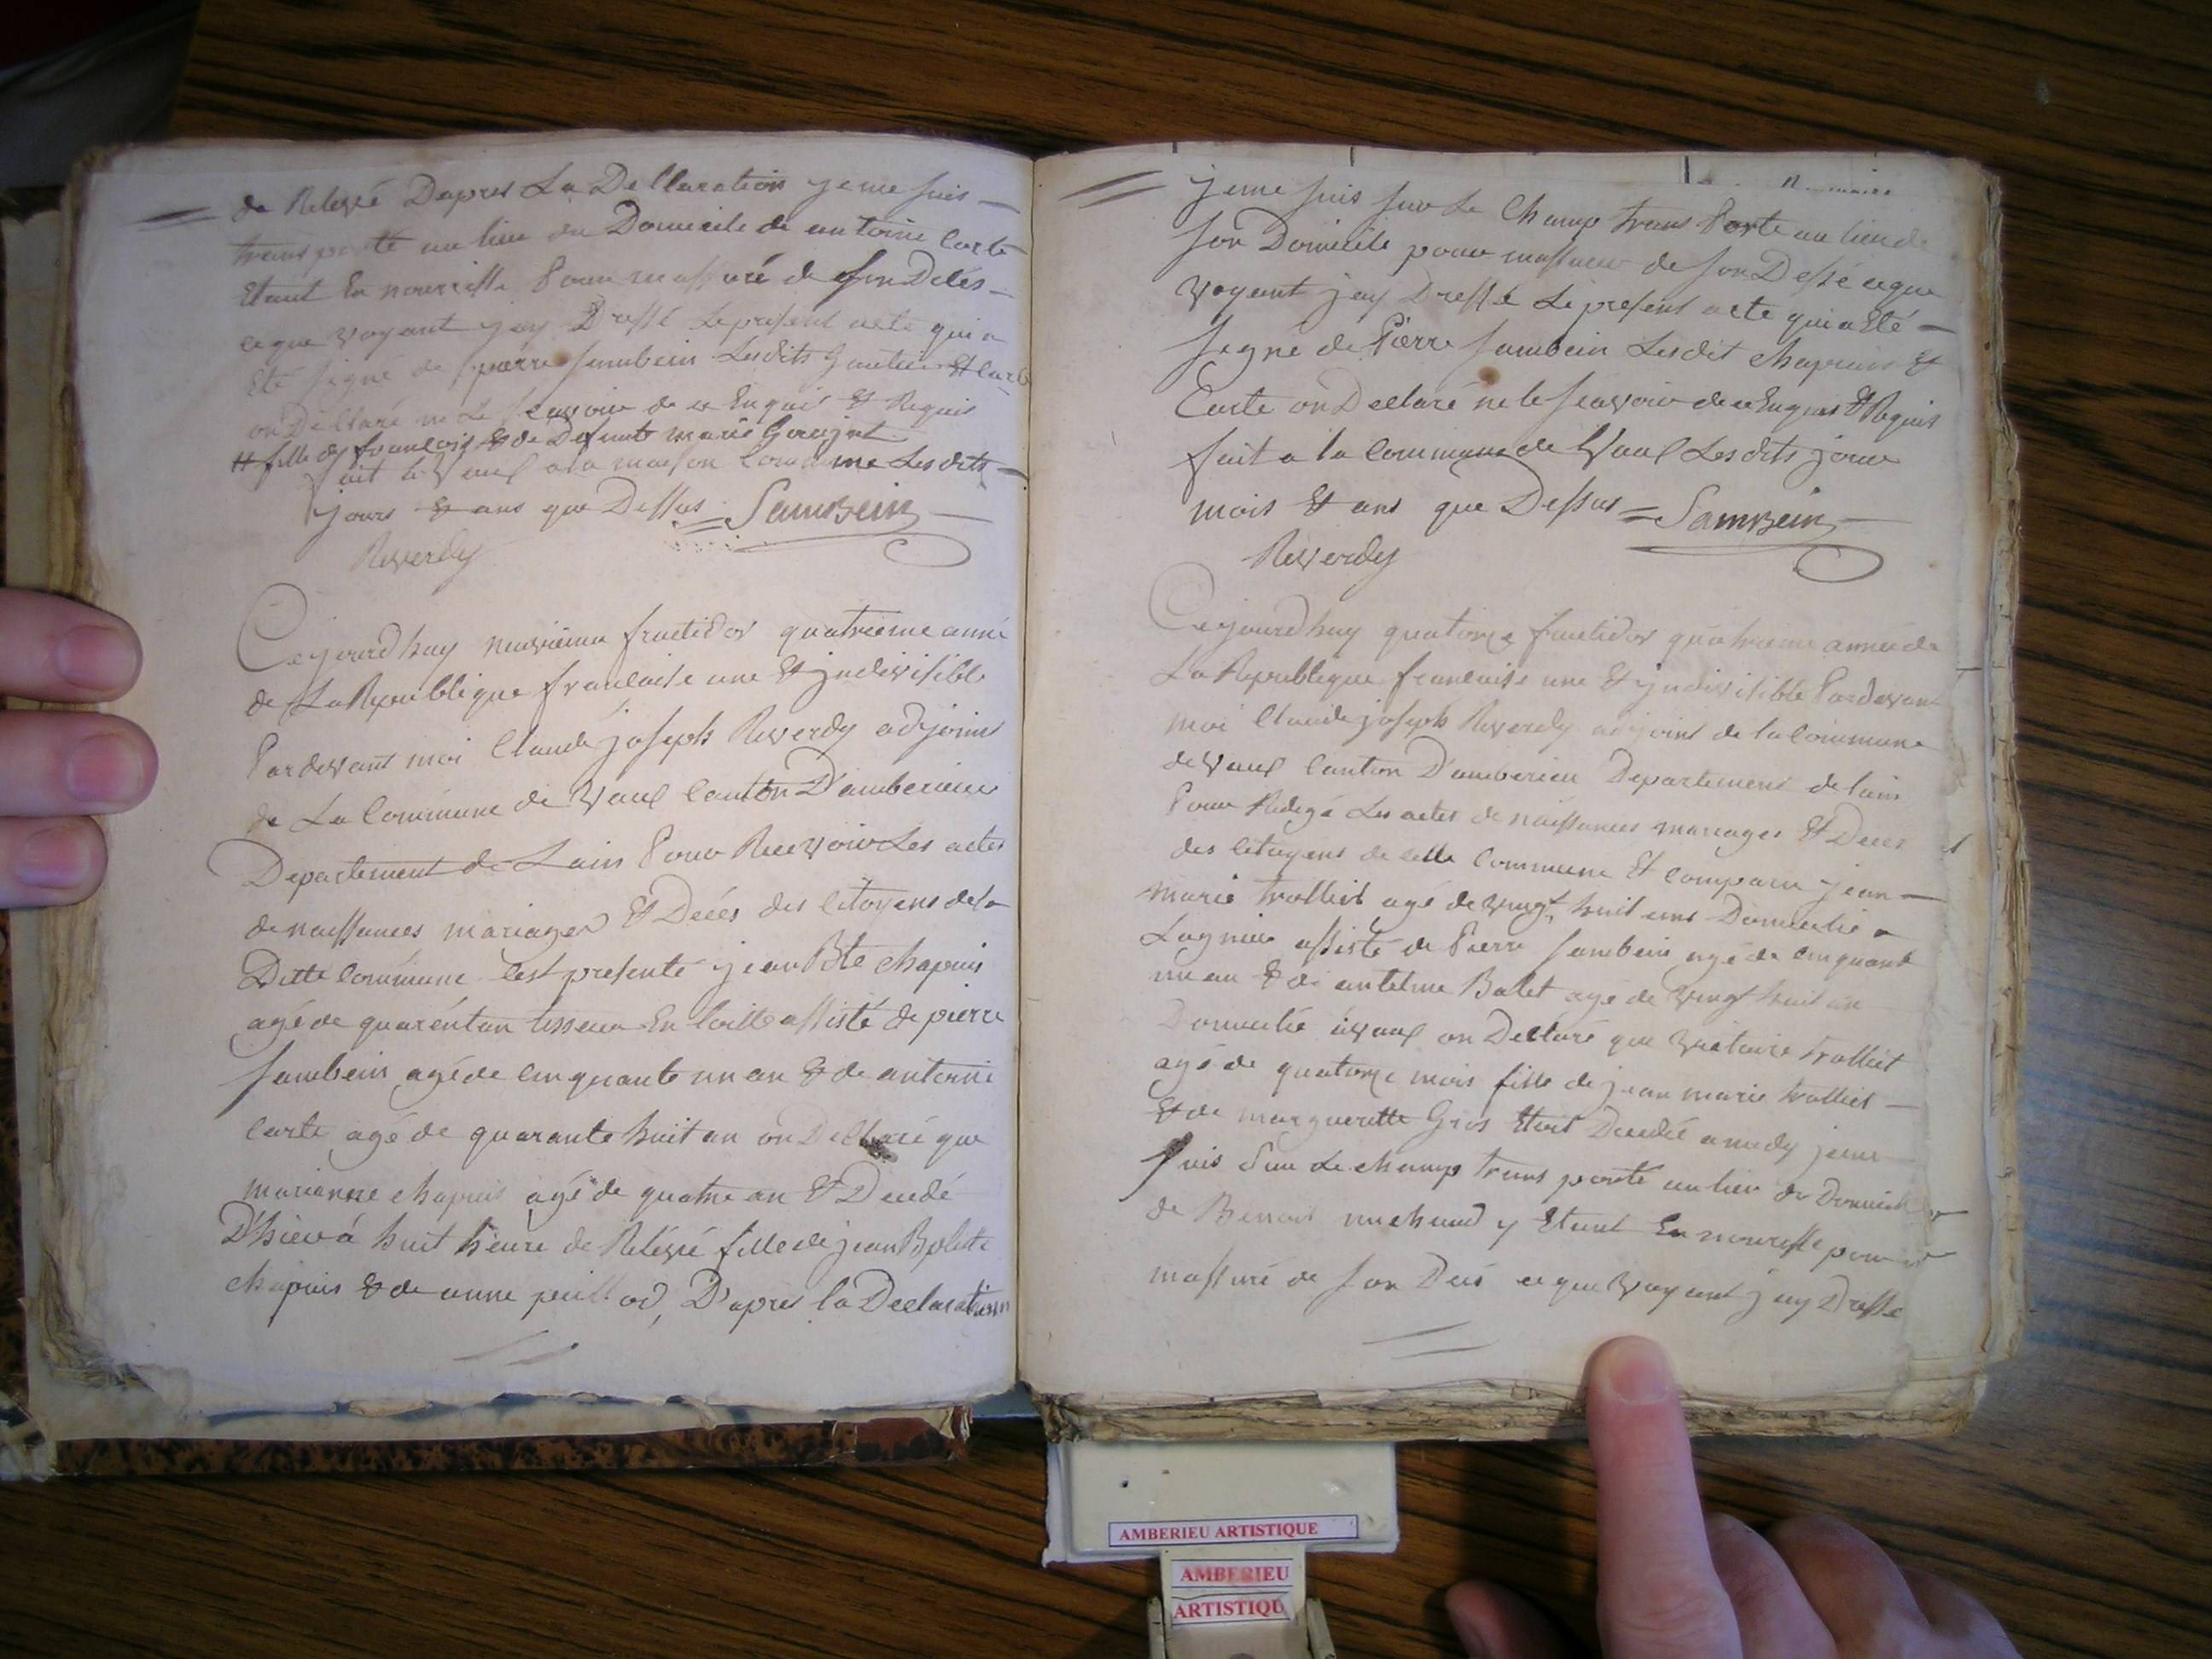 de Relevé Dapres La Dellaration je me suis
transporté au lieu du Domicile de antoine Carte
Etant En nourisse Pour massuré de son Delés
ce que voyant jay Dressé le present acte qui a
Eté signé de pierre sambein Lesdits Gautier Et Carte
on Dellaré ne Le scavoir de ce Enquis Et Requis
# fille de francois Et de Defunte marie Goujat
fait à Vaux a la maison Commune Les dits
jours Et ans que Dessus = Sambein
Reverdy
Cejourdhuy neuvieme fructidor quatrieme anné
de La Republique francaise une Et jndivisible
Pardevant moi Claude joseph Reverdy adjoint
de La Commune de Vaux Canton D'amberieu
Departement de Lain Pour Recevoir Les actes
de naissances mariages Et Decés des Citoyens de la
Ditte Commune Cest presenté jean Bte chapuis
agé de quarentan tisseur En toille assisté de pierre
sambein agé de cinquante un an Et de antoine
Carte agé de quarante huit an on Dellaré que
marianne chapuis agé de quatre an Et Decedé
D'hier á huit heure de Relevé fille de jean Bptiste
chapuis Et de anne peillod, D'apres la Declaration
je me suis sur Le Champ trans Porte au lieu de
son Domicile pour massurer de son Dessé ce que
voyant jay Dressé Le present acte qui a Eté
signé de Pierre sambein Lesdit chapuis Et
Carte on Declaré ne le scavoir de ce Enquis Et Requis
fait a la Commune de Vaux Les dits jour
mois Et ans que Dessus = Sambein
Reverdy
Cejourdhuy quatorze fructidor quatrieme année de
La Republique francaise une Et jndivisible Pardevant
moi Claude joseph Reverdy adjoint de la Commune
de Vaux Canton D'amberieu Departement de lain
Pour Redigé Les actes de naissances mariages Et Deces
des Citoyens de cette Commune Et Comparu jean
marie trolliet agé de vingt huit ans Domicilié a
Lagnieu assisté de Pierre sambein agé de cinquante
un an Et de antelme Balet agé de vingt huit an
Domicilié à Vaux on Dellaré que victoire trolliet
agé de quatorze mois fille de jean marie trolliet
Et de marguerette Gros Etoit Decedée a midy je me
suis sur Le champ trans porté au lieu du Domicile
de Benoit michaud y Etant En nourisse pour
massuré de son Decés ce que voyant jay Dressé
AMBERIEU ARTISTIQUE
AMBERIEU
ARTISTIQU